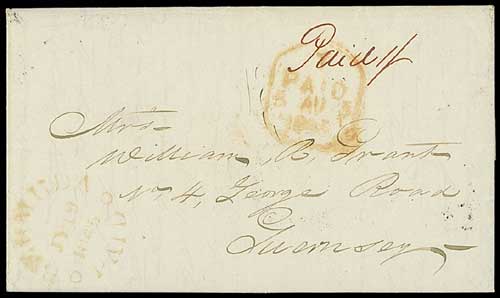 Paid 1/
PAID
5 AU 5
Mrs
William R. Grant
No. 4, George Road
Guernsey
PAID